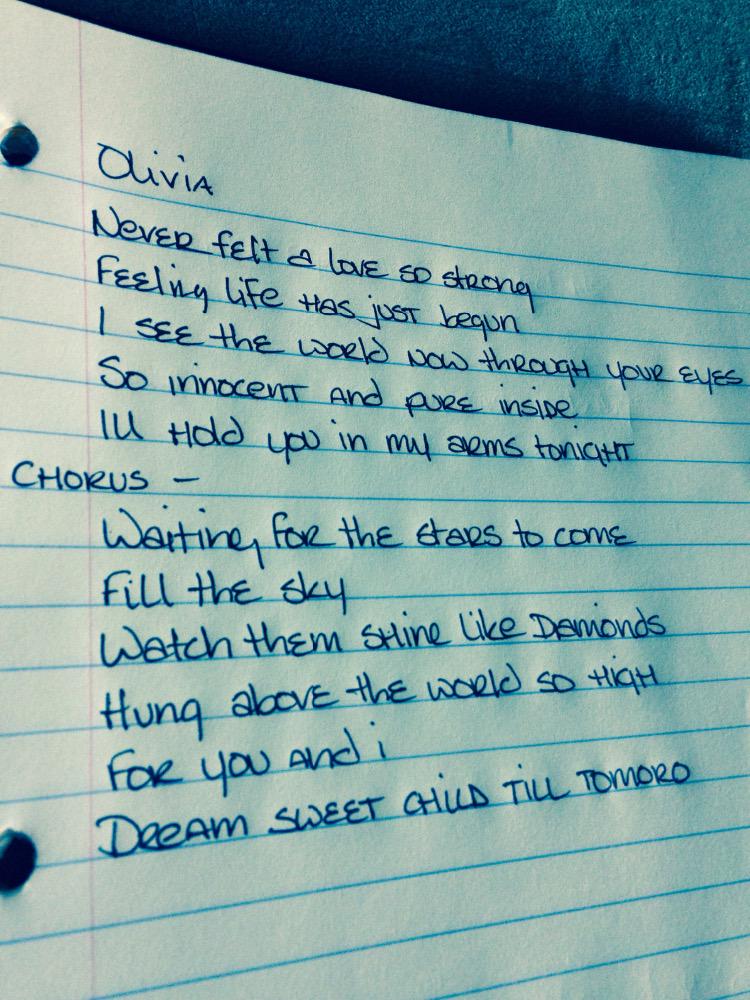 Olivia
Never felt a love so strong
Feeling life has just begun
I see the world now through your eyes
So innocent and pure inside
Ill hold you in my arms tonight
CHORUS –
Waiting for the stars to come
Fill the sky
Watch them shine like Damionds
Hung above the world so high
For you and i
Dream sweet child till tomoro